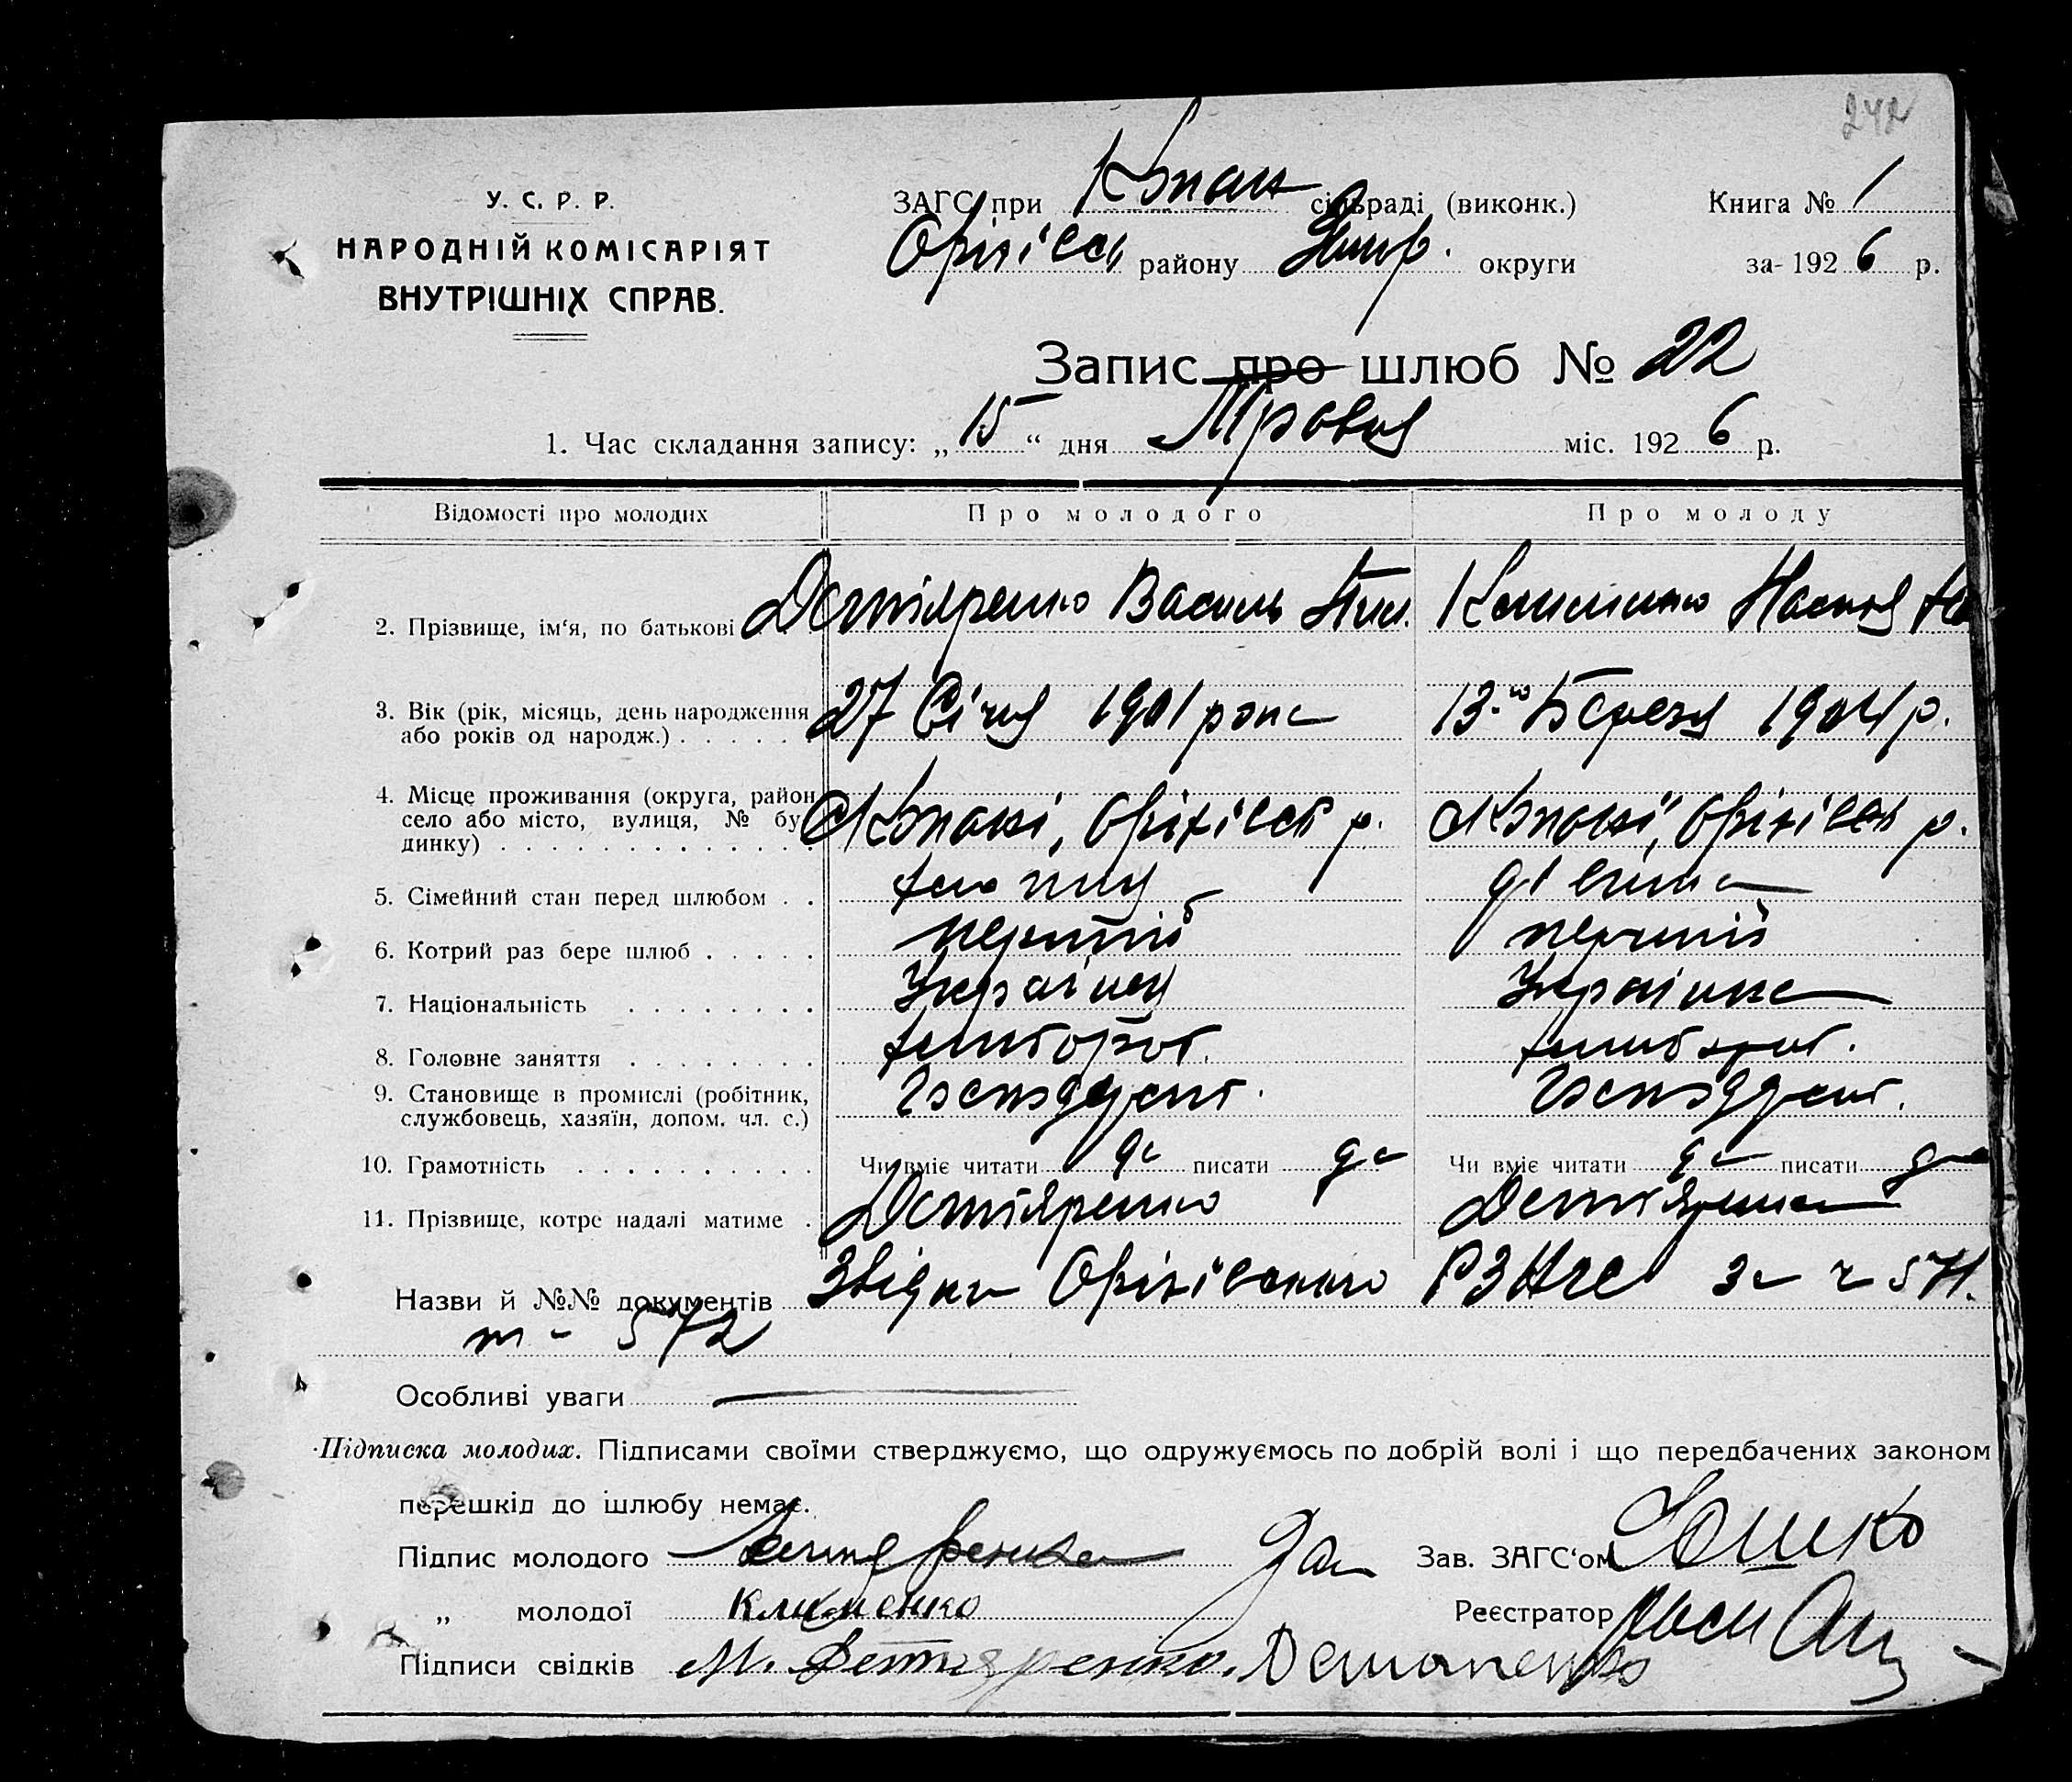 242
У. С. Р. Р.
НАРОДНІЙ КОМІСАРІЯТ
ВНУТРІШНІХ СПРАВ.
ЗАГС при Копан сільраді (виконк.) Книга № 1
Оріхівськ району Запор. округи за 1926 р.
Запис про шлюб № 22
1. Час складання запису: „15“ дня Травня міс. 1926 р.
Відомості про молодих Про молодого Про молоду
2. Прізвище, ім‘я, по батькові Дегтяренко Василь Клименко
3. Вік (рік, місяць, день народження 27 Січня 1901 року 13-го Березня 1904 р.
або років од народж.)
4. Місце проживання (округа, район
село або місто, вулиця, № бу- с Копані, Оріхівськ р. с Копані, Оріхівськ р.
динку)
5. Сімейний стан перед шлюбом дівчина
6. Котрий раз бере шлюб перший перший
7. Національність Українец Українка
8. Головне заняття хлібороб. хлібороб.
9. Становище в промислі (робітник,
службовець, хазяїн, допом. чл. с.)
10. Грамотність Чи вміє читати да писати да Чи вміє читати да писати да
11. Прізвище, котре надалі матиме Дегтяренко Дегтяренко
Назви й №№ документів Звідка Оріхівського за ч 571.
та 572
Особливі уваги
Підписка молодих. Підписами своїми стверджуємо, що одружуємось по добрій волі і що передбачених законом
перешкід до шлюбу немає.
Підпис молодого Зав. ЗАГС‘ом
„ молодої Клименко Реєстратор
Підписи свідків М. Дегтяренко.